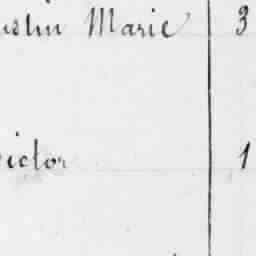 ustin Marie 3
victor 1